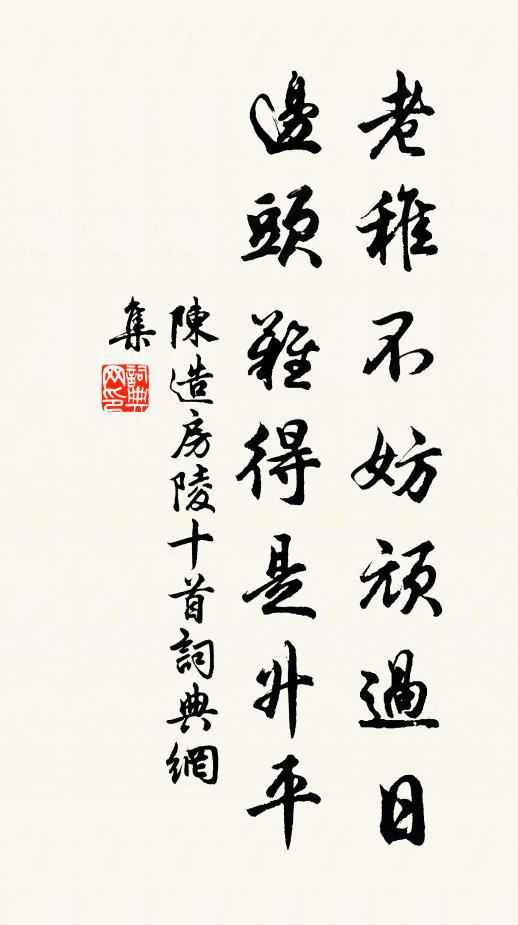 老稚不妨頑過日
邊頭難得是升平
陳造房陵十首詞典網
集
詞典
网印